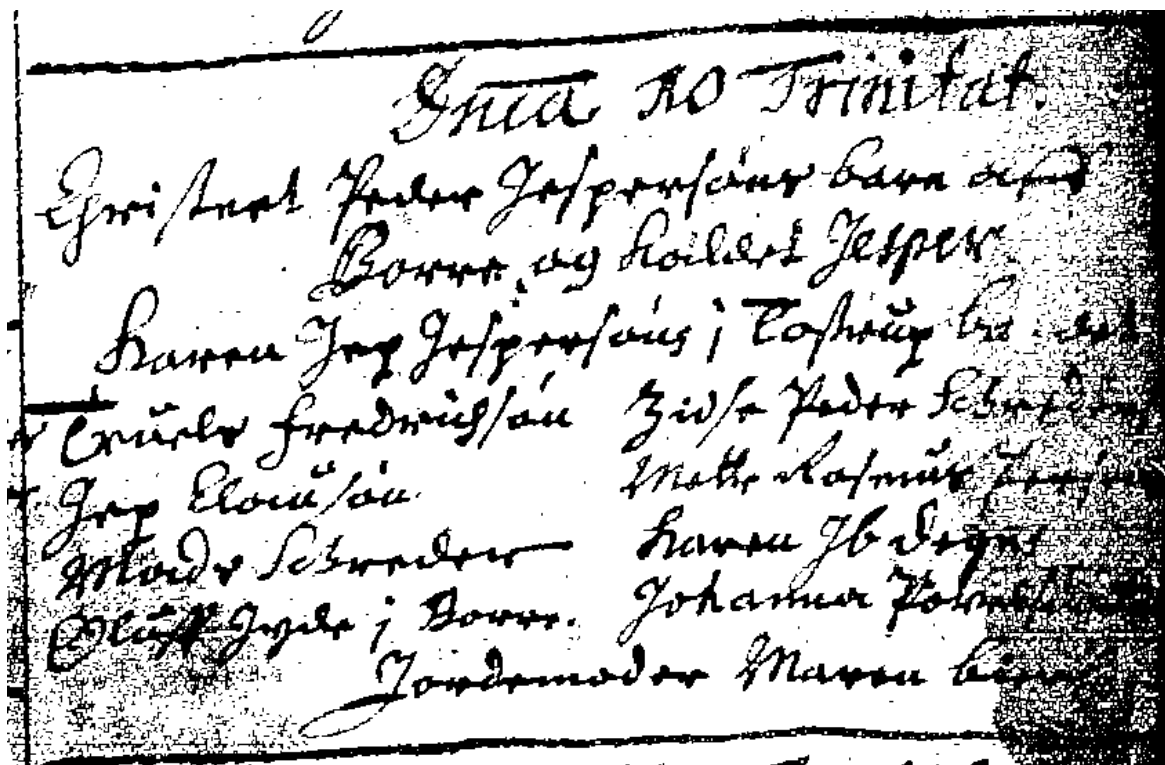 Dnica 20 Trinitat.
Christnet Peder Jespersøns barn aff
Borre, og kaldet Jesper.
Karen Jep Jespersøns i Tostrup bar det
Truels Fredrichsøn Zidse Peder Schreders
Jep Clausøn. Mette Rasmus
Mads Schreder Karen Ib degns
Oluff Jyde i Borre. Johanna
Jordemoder Maren